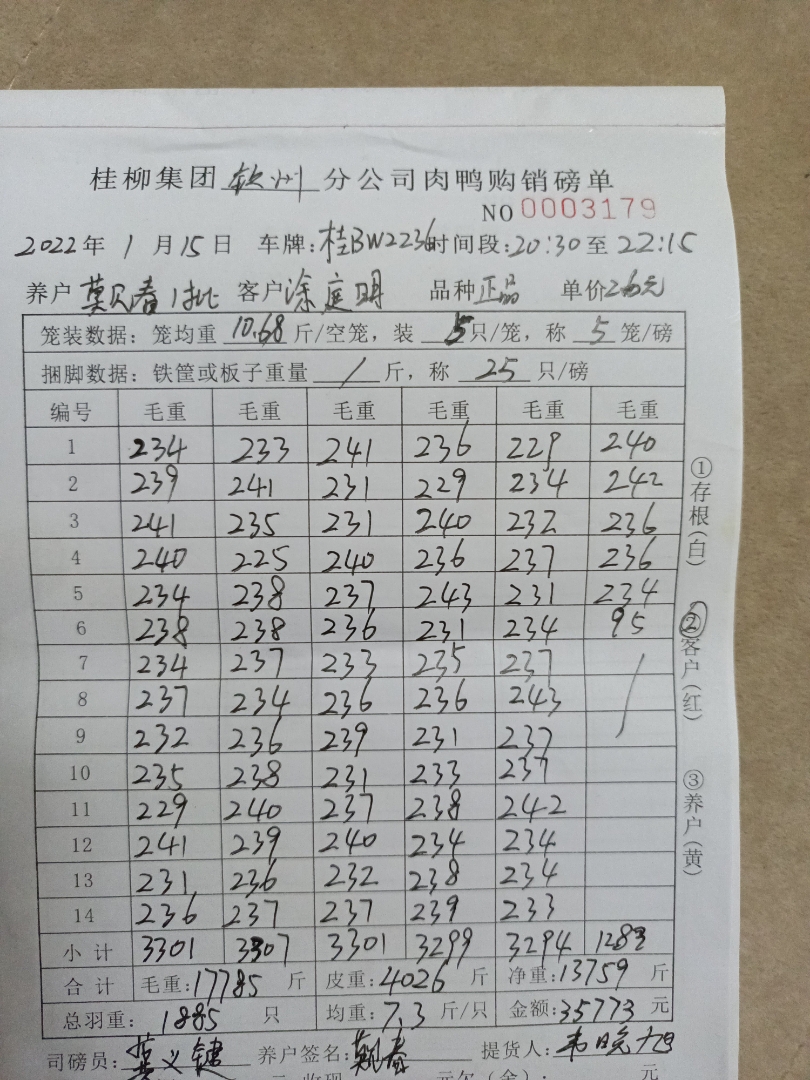 桂柳集团钦州分公司肉鸭购销磅单
NO 0003179
2022年1月15日 车牌:桂BW2236 时间段:20:30至22:15
养户 莫 春1批 客户 涂庭明 品种 正品 单价2.6元
笼装数据: 笼均重 10.68 斤/空笼, 装 5 只/笼, 称 5 笼/磅
捆脚数据: 铁筐或板子重量 / 斤, 称 25 只/磅
编号 毛重 毛重 毛重 毛重 毛重 毛重
1 234 233 241 236 229 240
2 239 241 231 229 234 242
3 241 235 231 240 232 236
4 240 225 240 236 237 236
5 234 238 237 243 231 234
6 238 238 236 231 234 95
7 234 237 233 235 237 /
8 237 234 236 236 243
9 232 236 239 231 237
10 235 238 231 233 237
11 229 240 237 238 242
12 241 239 240 234 234
13 231 236 232 238 234
14 236 237 237 239 233
小计 3301 3307 3301 3299 3294 1283
合计 毛重:17785 斤 皮重:4026 斤 净重:13759 斤
总羽重: 1885 只 均重:7.3 斤/只 金额:35773 元
司磅员: 义键 养户签名: 春 提货人: 韦晓
元 收现 元欠(余): 元
①存根(白)
②客户(红)
③养户(黄)